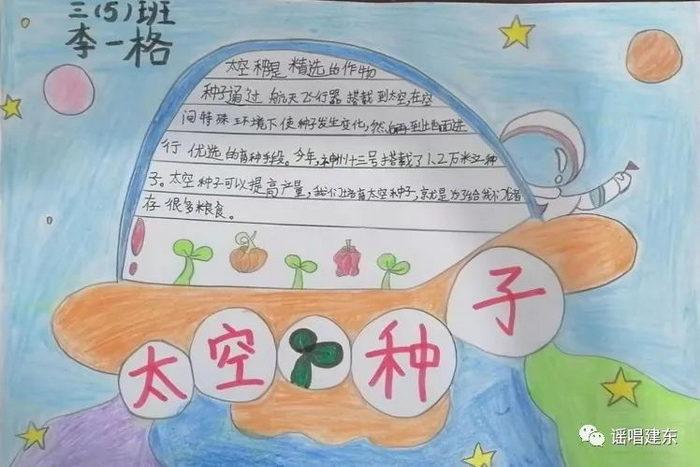 三(5)班
李一格
太空种是精选的作物
种子通过航天飞行器搭载到太空,在空
间特殊环境下使种子发生变化,然后再到地面进
行优选的育种手段。今年,神舟十三号搭载了1.2万
子。太空种子可以提高产量,我们培育太空种子,就是为了给我们
存很多粮食。
太空种子
谣唱建东